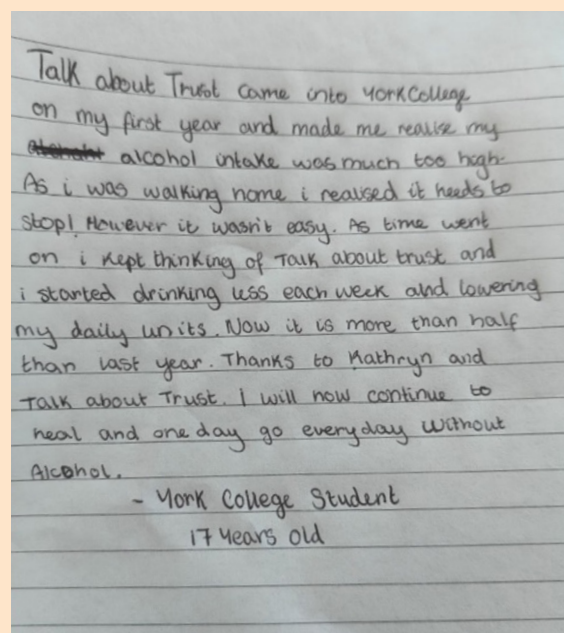 Talk about Trust came into York College
on my first year and made me realise my
alcohol intake was much too high.
As i was walking home i realised it needs to
stop! However it wasn't easy. As time went
on i kept thinking of Talk about trust and
i started drinking less each week and lowering
my daily units. Now it is more than half
than last year. Thanks to Kathryn and
Talk about Trust. I will now continue to
heal and one day go everyday without
Alcohol.
- York College Student
17 Years old